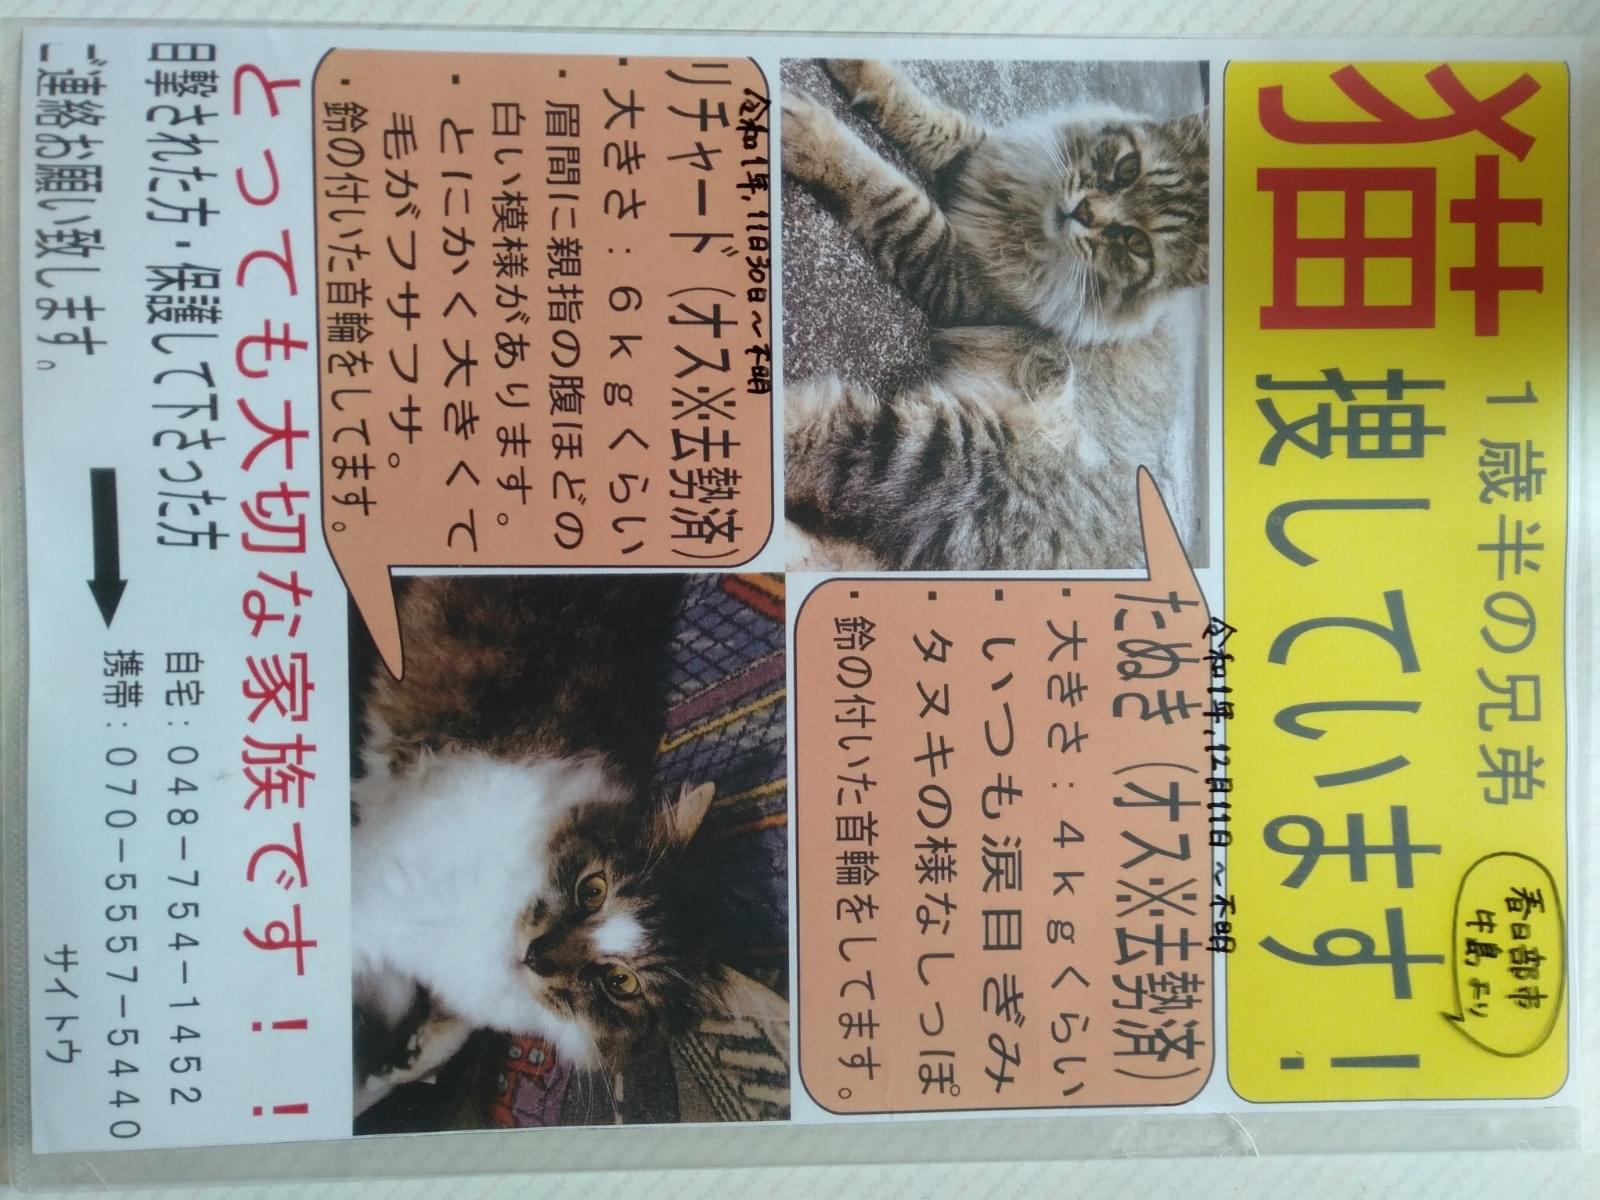 猫
1歳半の兄弟
捜しています!
春日部市
牛島より
令和1年,12月11日~不明
たぬき(オス※去勢済)
・大きさ:4kgくらい
・いつも涙目ぎみ
・タヌキの様なしっぽ
・鈴の付いた首輪をしてます。
令和1年,11月30日~不明
リチャード(オス※去勢済)
・大きさ:6kgくらい
・眉間に親指の腹ほどの
白い模様があります。
・とにかく大きくて
毛がフサフサ。
・鈴の付いた首輪をしてます。
とっても大切な家族です!!
目撃された方・保護して下さった方
ご連絡お願い致します。
自宅:048-754-1452
携帯:070-5557-5440
サイトウ